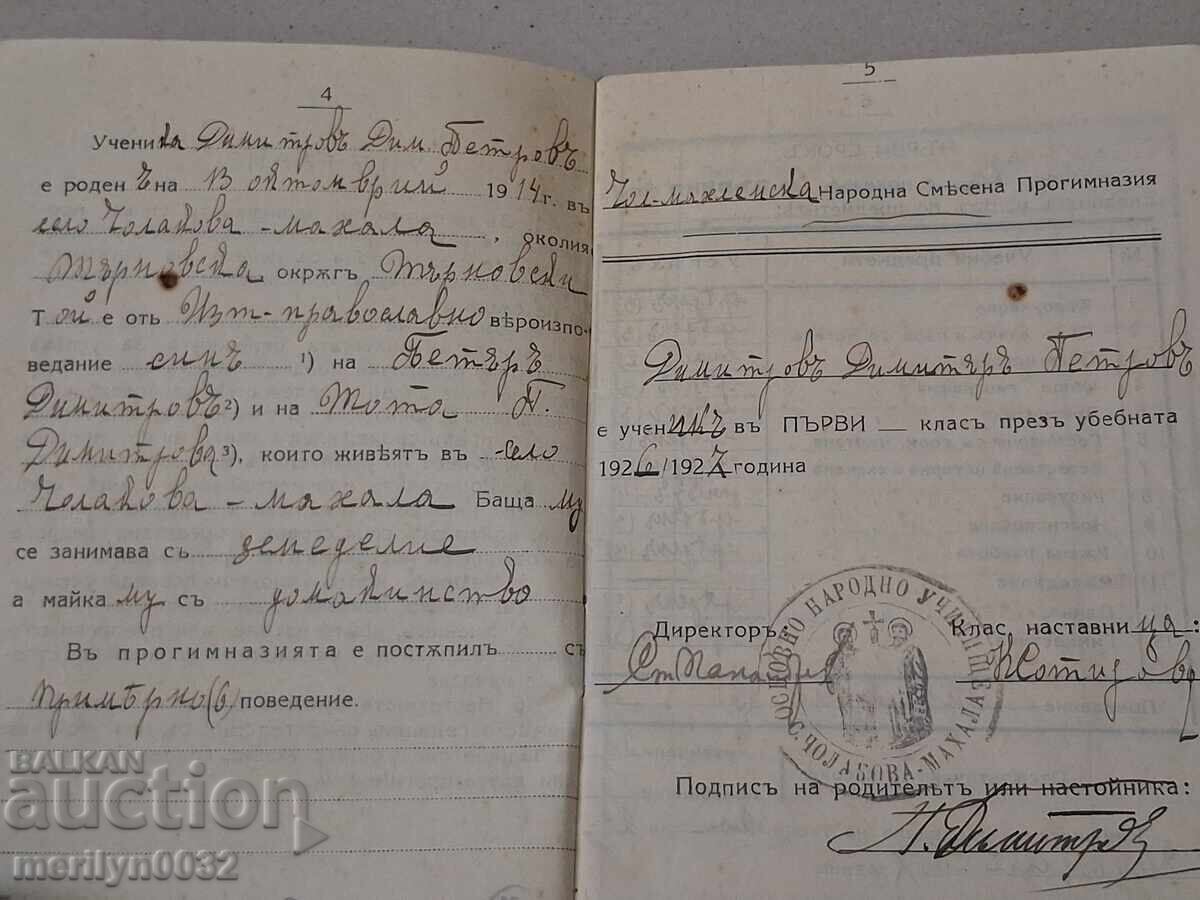 4
Ученика Димитровъ Дим. Петровъ
е роденъ на 13 октомврий 1914 г. въ
село Чолакова-махала, околия
Търновска окржгъ Търновски
Той е отъ Изт-православно вѣроизпо-
ведание синъ 1) на Петъръ
Димитровъ 2) и на Тота П.
Димитрова 3), които живѣятъ въ село
Чолакова-махала Баща му
се занимава съ земеделие
а майка му съ домакинство
Въ прогимназията е постѫпилъ съ
примѣрно (6) поведение.
5
Чол-махленска Народна Смѣсена Прогимназия
Димитровъ Димитъръ Петровъ
е ученикъ въ ПЪРВИ класъ презъ убебната
1926/1927 година
Директоръ: Клас. наставница:
ОСНОВНО НАРОДНО УЧИЛИЩЕ
С. ЧОЛАКОВА-МАХАЛА
Подписъ на родительтъ или настойника:
П. Димитровъ
BALKAN
auction
merilyn0032